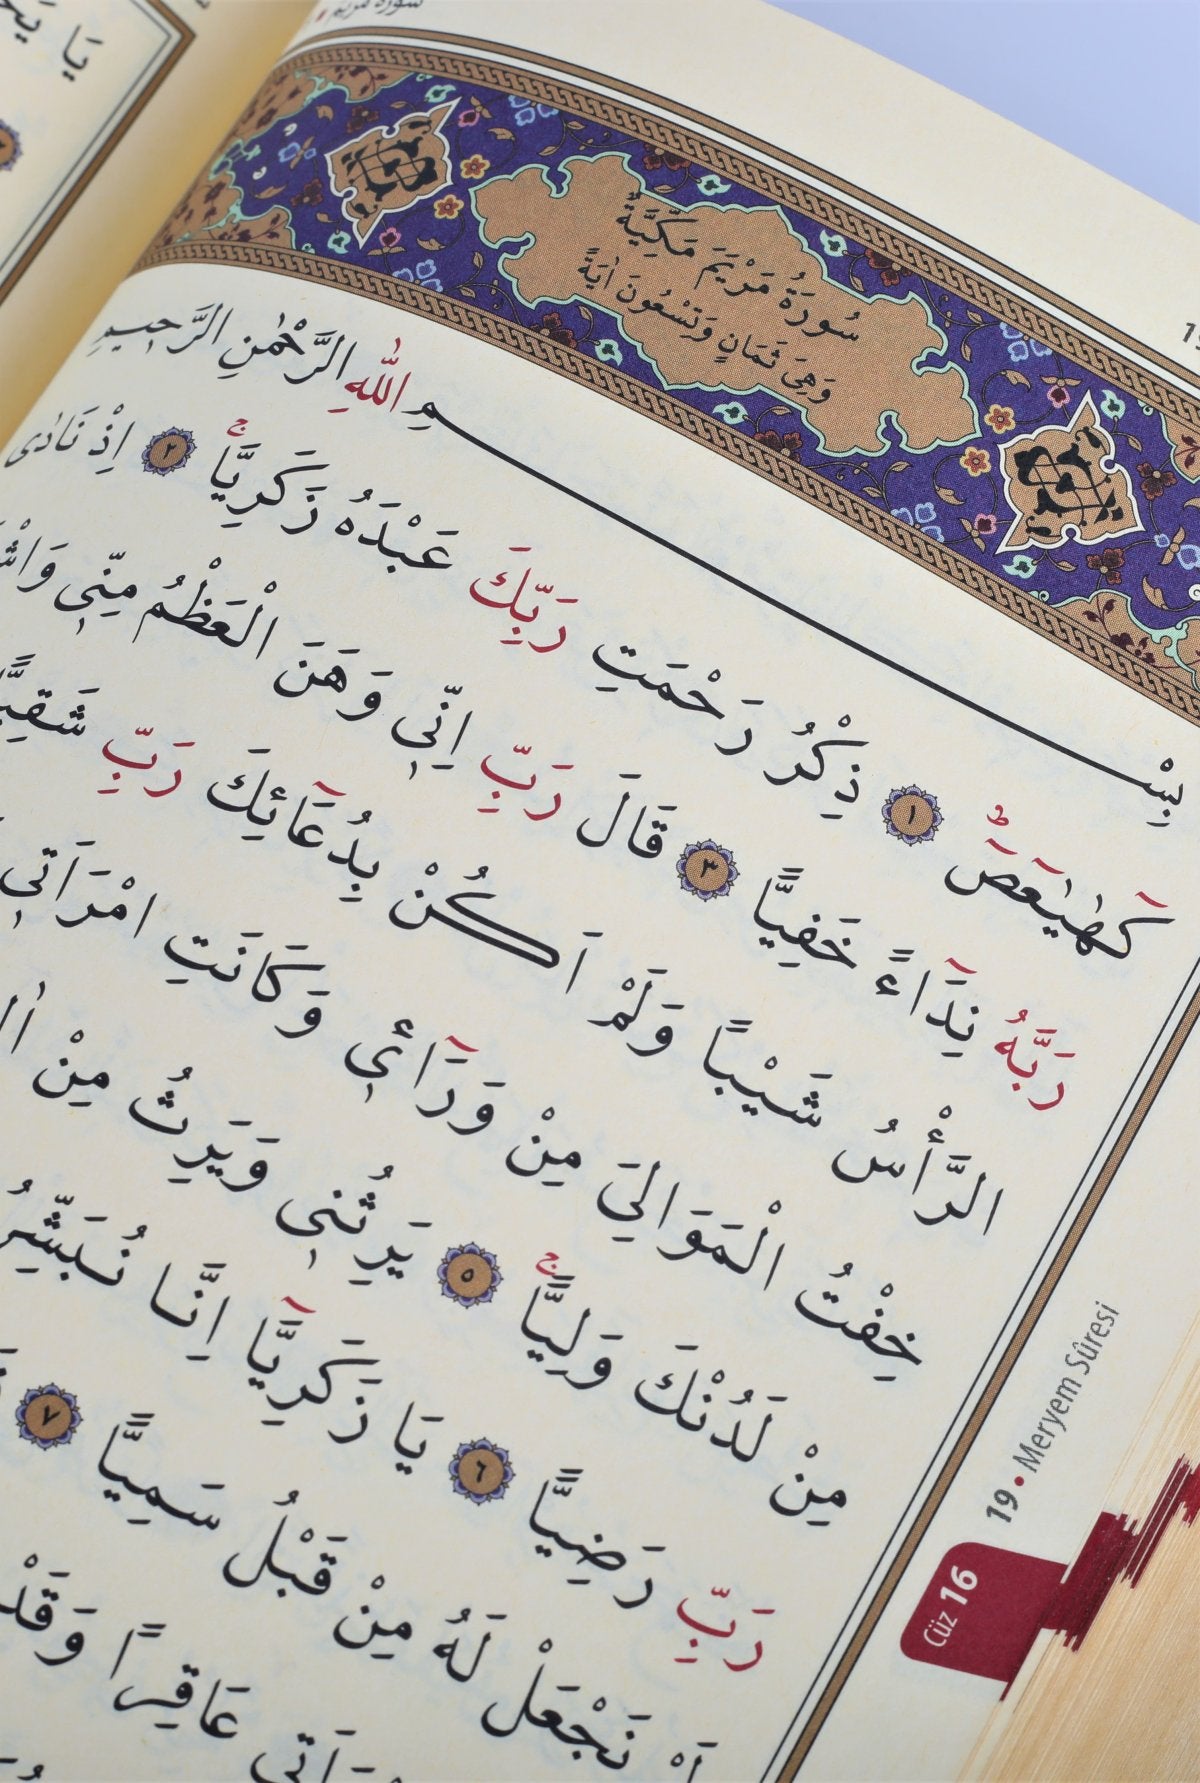 سُورَةُ مَرْيَمَ مَكِّيَّةٌ
وَهِىَ ثَمَانٍ وَتِسْعُونَ اٰيَةً
بِسْمِ اللّٰهِ الرَّحْمٰنِ الرَّحِيمِ
كٓهٰيٰعٓصٓ ﴿١﴾ ذِكْرُ رَحْمَتِ رَبِّكَ عَبْدَهُ زَكَرِيَّاۚ ﴿٢﴾ اِذْ نَادٰى
رَبَّهُ نِدَٓاءً خَفِيًّا ﴿٣﴾ قَالَ رَبِّ اِنّ۪ى وَهَنَ الْعَظْمُ مِنّ۪ى
الرَّأْسُ شَيْبًا وَلَمْ اَكُنْ بِدُعَٓائِكَ رَبِّ
خِفْتُ الْمَوَالِيَ مِنْ وَرَٓاء۪ى وَكَانَتِ امْرَاَت۪ى
مِنْ لَدُنْكَ وَلِيًّاۚ ﴿٥﴾ يَرِثُن۪ى وَيَرِثُ مِنْ
رَبِّ رَضِيًّا ﴿٦﴾ يَا زَكَرِيَّٓا اِنَّا نُبَشِّرُ
نَجْعَلْ لَهُ مِنْ قَبْلُ سَمِيًّا ﴿٧﴾
عَاقِرًا وَقَدْ
19 • Meryem Sûresi
Cüz 16